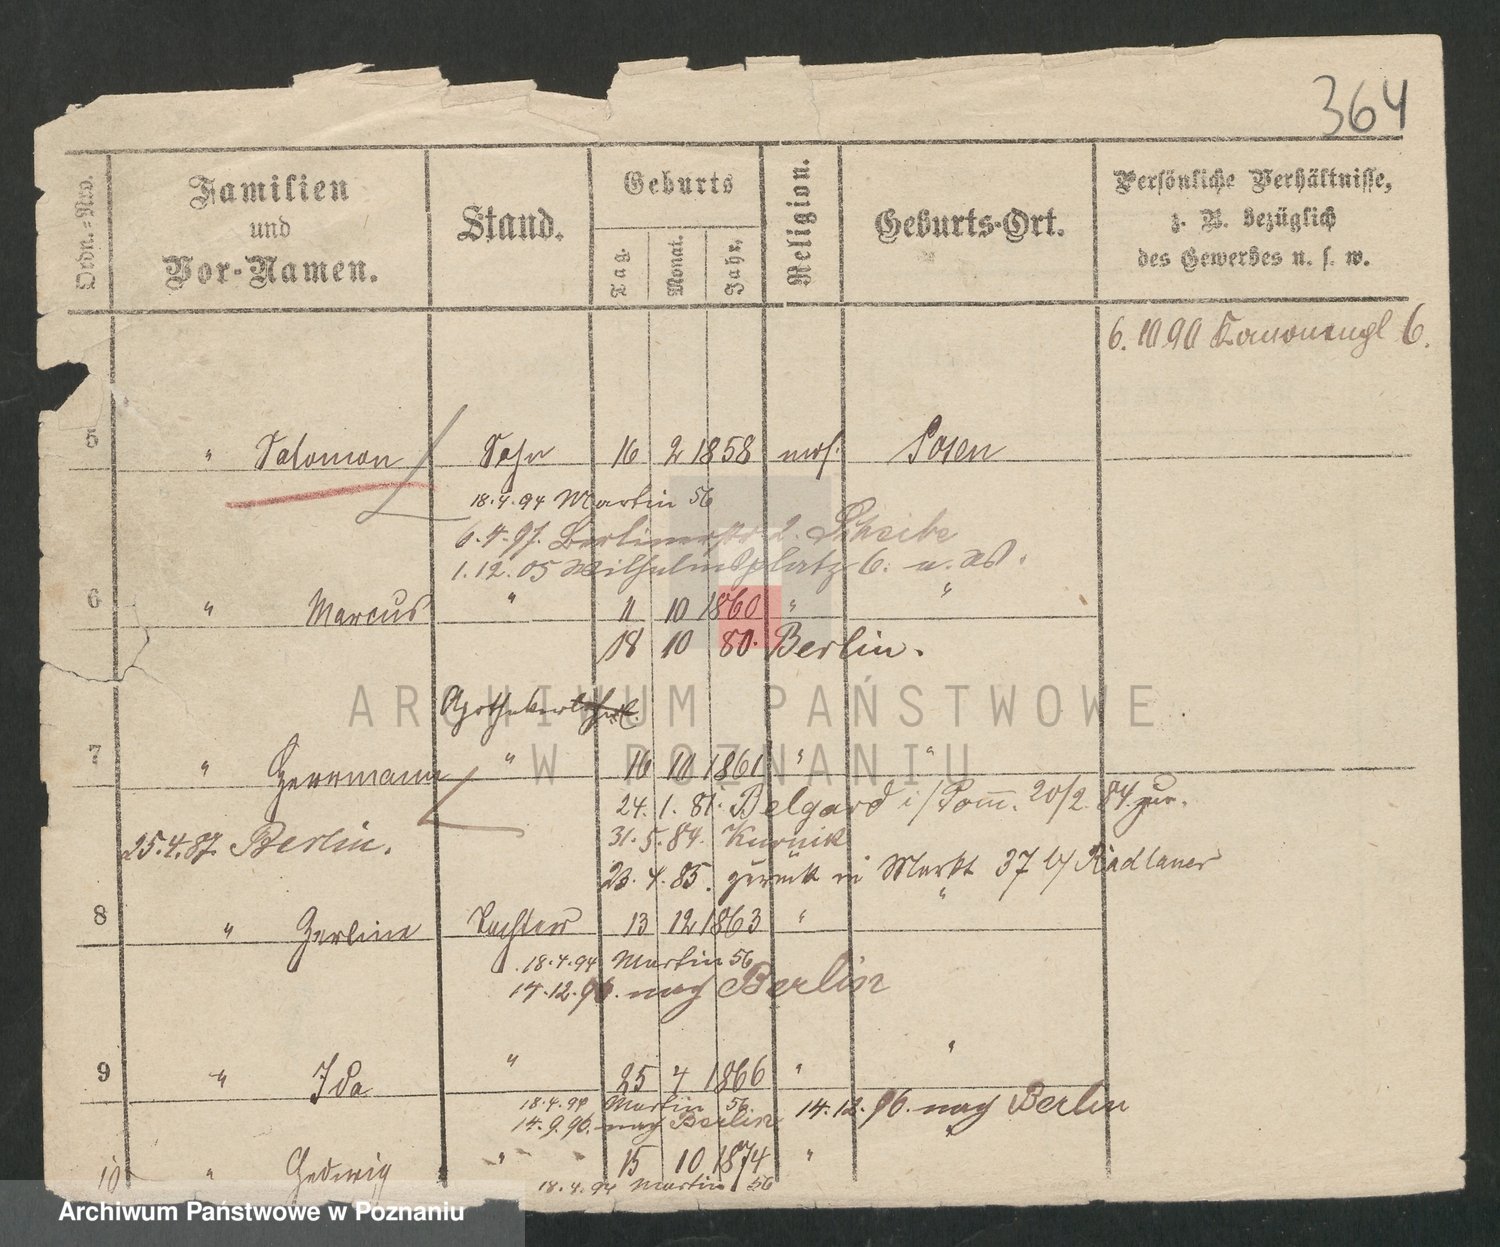 364
Ordn.=No.
Familien
und
Vor-Namen.
Stand.
Geburts
Tag.
Monat.
Jahr.
Religion.
Geburts-Ort.
Persönliche Verhältnisse,
z. B. bezüglich
des Gewerbes u. s. w.
6. 10 90 Kanonengl 6.
5 " Salomon Sohn 16 2 1858 mos. Posen
18.4.94 Martin 56
6.4.97. Berlinerstr 2. Scheibe
1.12.05 Wilhelmsplatz 6.
6 " Marcus " 11 10 1860 " "
18 10 80. Berlin.
Apotheker
7 " Herrmann " 16 10 1861 " "
24. 1. 81. Belgard i/Pom. 20/2 84 zur.
31. 5. 84. Kurnik
25.4.87 Berlin.
23. 4. 85. zurück in Markt 37 b/ Radlauer
8 " Zerline Tochter 13 12 1863 " "
18.4.94 Martin 56
14.12.96. nach Berlin
9 " Ida " 25 4 1866 " "
18.4.94 Martin 56 14.12.96. nach Berlin
14.9.96. nach Berlin
10 " Hedwig " 15 10 1874 " "
18.4.94 Martin 56
ARCHIWUM PAŃSTWOWE
W POZNANIU
Archiwum Państwowe w Poznaniu